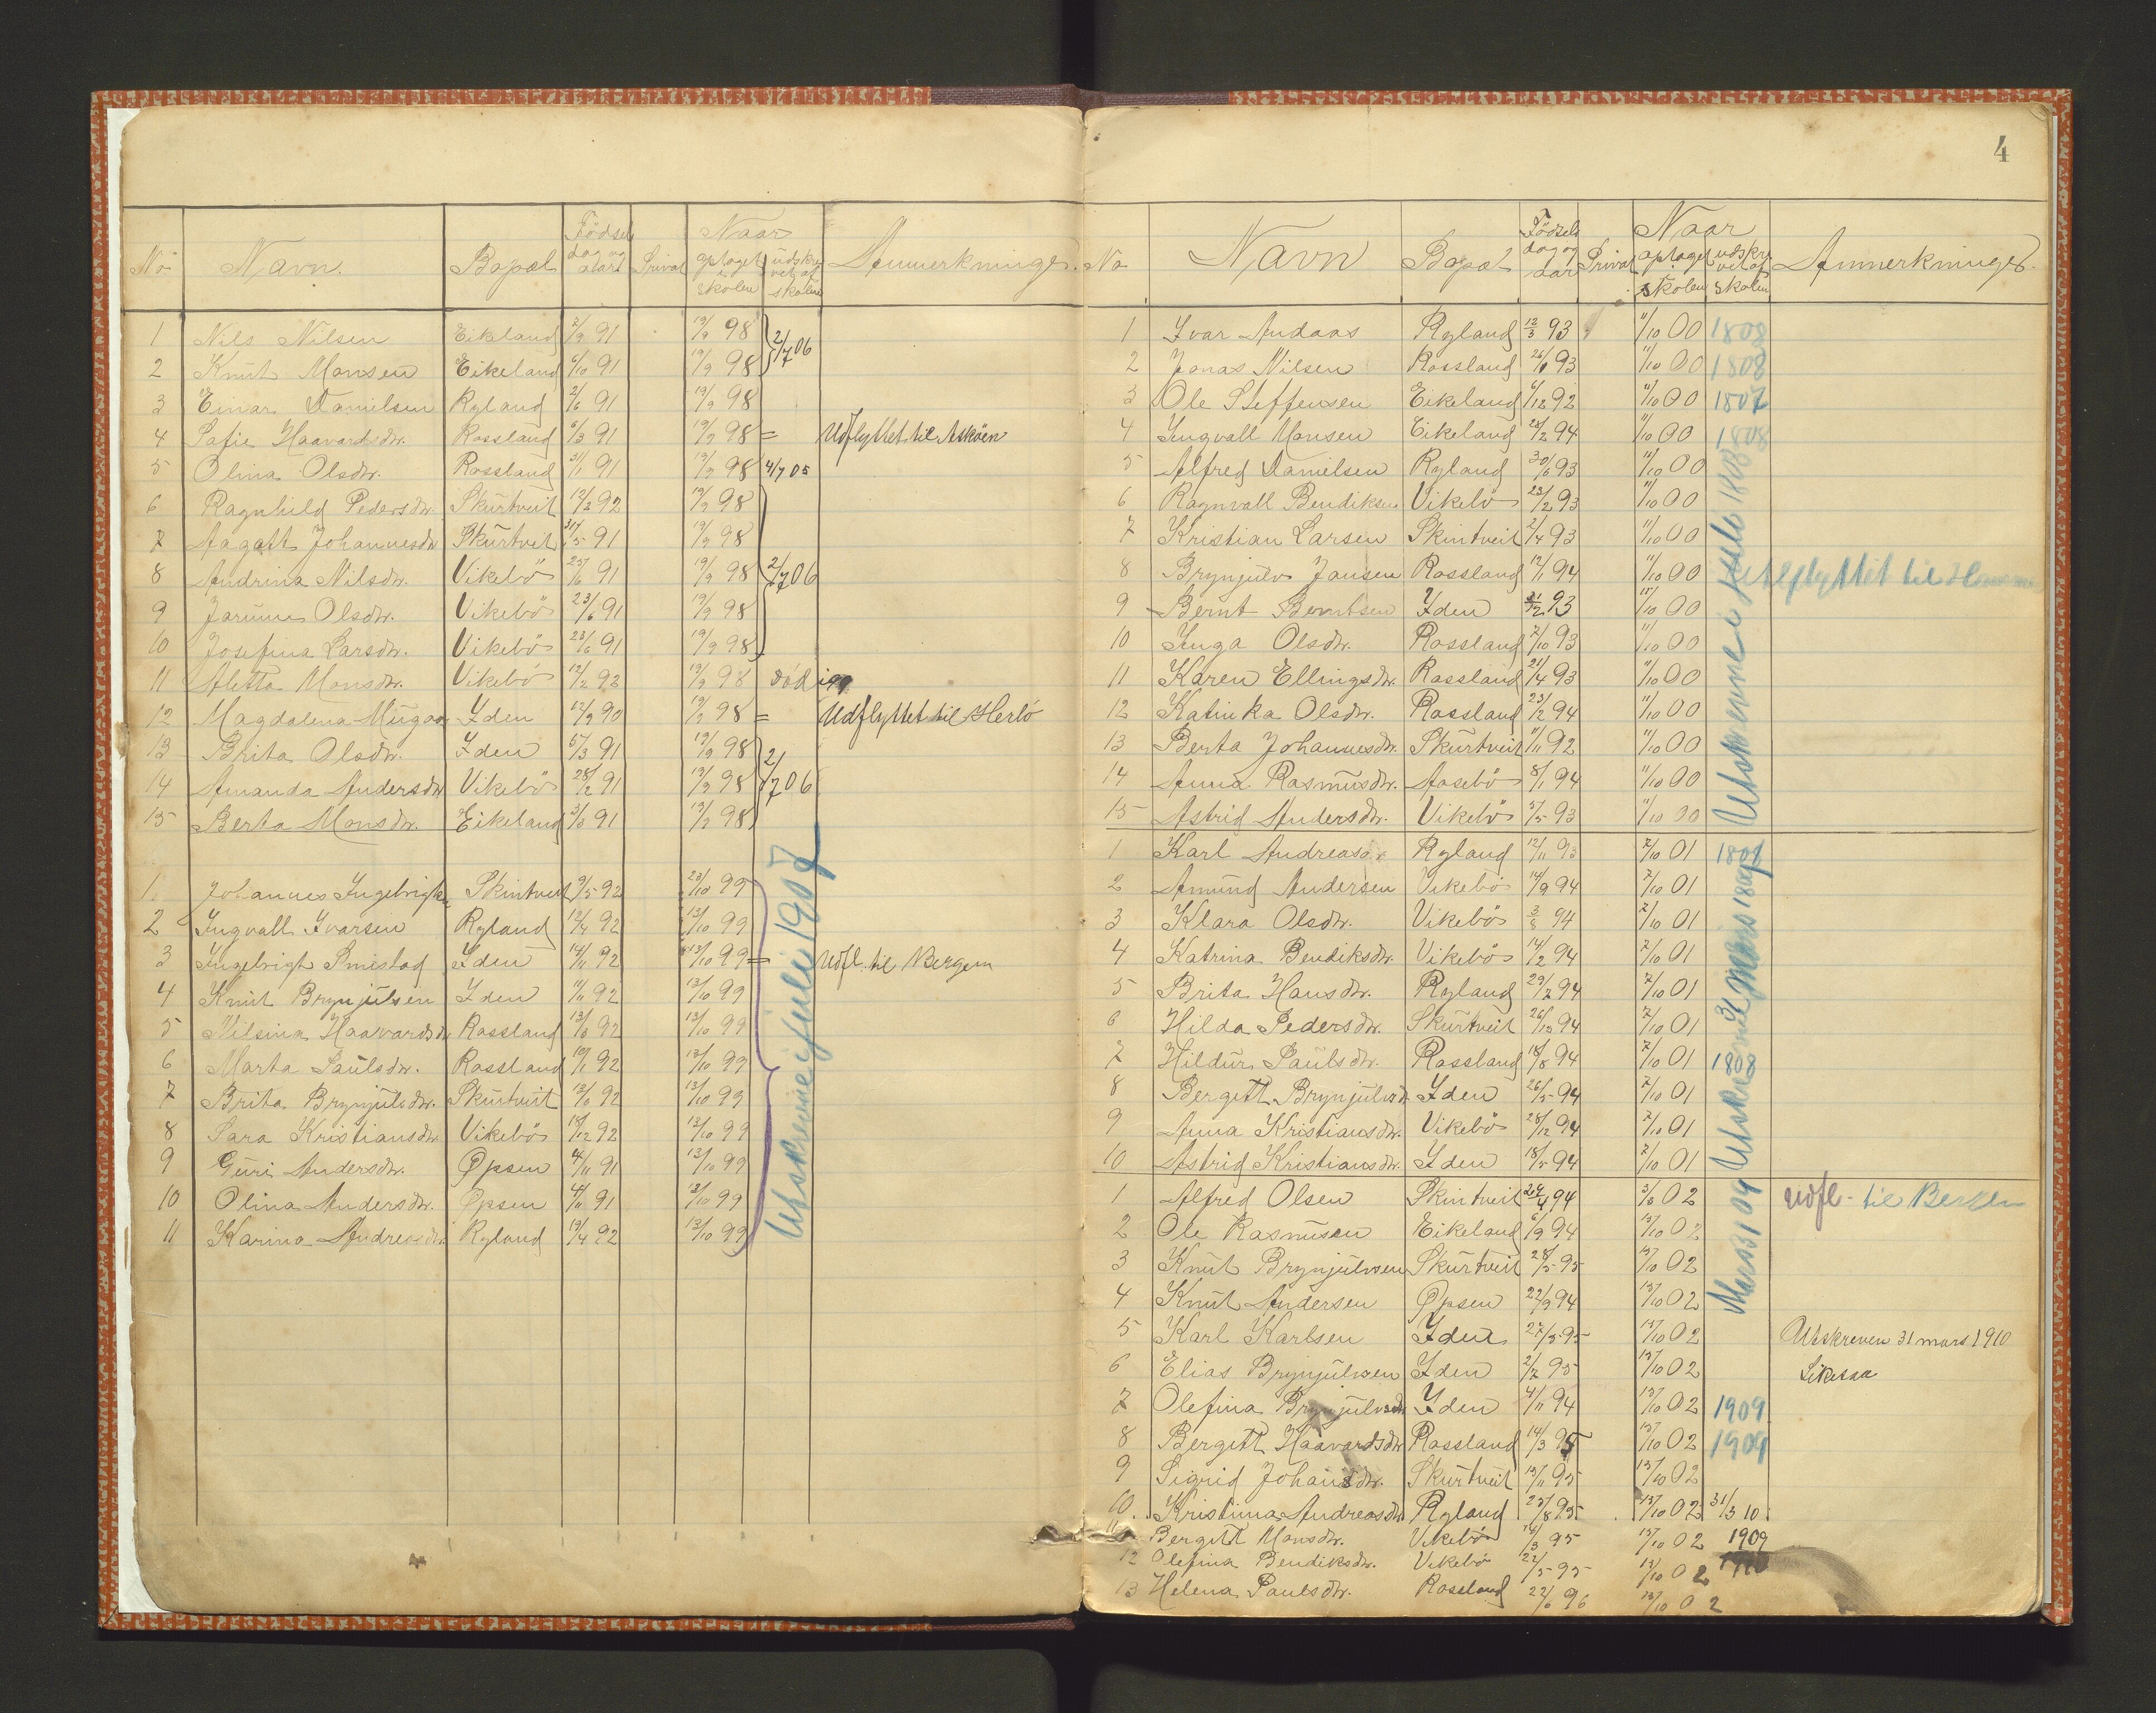 No Navn. Bopæl Födsels dag og aar Privat Naar optaget i skolen udskrevet af skolen Anmerkninger.
1 Nils Nilsen Eikeland 2/9 91 19/9 98 2/7 06
2 Knut Monsen Eikeland 6/10 91 19/9 98
3 Einar Danielsen Ryland 2/6 91 19/9 98
4 Sofie Haavardsdtr. Rossland 6/3 91 19/9 98 = Udflyttet til Asköen
5 Olina Olsdtr. Rossland 31/1 91 19/9 98 4/7 05
6 Ragnhild Pedersdtr. Skurtveit 12/2 92 19/9 98
7 Aagott Johannesdtr Skurtveit 31/5 91 19/9 98
8 Andrina Nilsdtr. Vikebö 25/6 91 19/9 98 2/7 06
9 Olsdtr. Vikebö 23/6 91 19/9 98
10 Josefina Larsdtr. Vikebö 23/6 91 19/9 98
11 Aletta Monsdtr. Vikebö 12/2 92 19/9 98 död
12 Magdalena Yden 12/9 90 19/9 98 = Udflyttet til Herlö
13 Brita Olsdtr. Yden 5/3 91 19/9 98 2/7 06
14 Amanda Andersdtr Vikebö 28/2 91 19/9 98
15 Berta Monsdtr. Eikeland 91 19/9 98
1. Johannes Ingebrigts Skintveit 9/5 92 23/10 99
2 Ingvall Ivarsen Ryland 12/4 92 13/10 99
3 Ingebrigt Smistad Yden 14/11 92 13/10 99 = Udfl. til Bergen
4 Knut Brynjulsen Yden 92 13/10 99
5 Nilsina Haavardsdtr Rossland 92 13/10 99
6 Marta Paulsdtr. Rossland 10/1 92 13/10 99
7 Brita Brynjulsdtr. Skurtveit 12/6 92 13/10 99
8 Sara Kristiansdtr Vikebö 18/12 92 13/10 99
9 Guri Andersdtr. Opsen 4/11 91 13/10 99
10 Olina Andersdtr. Opsen 4/11 91 13/10 99
11 Karina Andreasdtr Ryland 19/4 92 13/10 99
Utskrevne i juli 1907
4
No Navn Bopæl Födsels dag og aar Privat Naar optaget i skolen udskrevet af skolen Anmerkninger.
1 Ivar Andaas Ryland 12/3 93 11/10 00 1808
2 Jonas Nilsen Rossland 26/6 93 11/10 00 1808
3 Ole Steffensen Eikeland 6/12 92 11/10 00 1807
4 Ingvall Monsen Eikeland 28/2 94 11/10 00 1808
5 Alfred Danielsen Ryland 30/6 93 11/10 00
6 Ragnvall Bendiksen Vikebö 23/2 93 11/10 00
7 Kristian Larsen Skintveit 2/4 93 11/10 00
8 Brynjulv Jansen Rossland 12/1 94 11/10 00 Utflyttet til
9 Bernt Berntsen Yden 31/12 93 11/10 00
10 Inga Olsdtr. Rossland 7/10 93 11/10 00
11 Karen Ellingsdtr. Rossland 21/4 93 11/10 00
12 Katinka Olsdtr. Rossland 23/12 94 11/10 00
13 Berta Johannesdtr. Skurtveit 11/11 92 11/10 00
14 Anna Rasmusdtr. Aasebö 8/1 94 11/10 00
15 Astrid Andersdtr. Vikebö 5/5 93 11/10 00
Utskrevne i Juli 1808
1 Karl Andreasen Ryland 12/11 93 7/10 01
2 Amund Andersen Vikebö 14/9 94 7/10 01
3 Klara Olsdtr. Vikebö 94 7/10 01
4 Katrina Bendiksdtr. Vikebö 14/2 94 7/10 01
5 Brita Hansdtr. Ryland 29/7 94 7/10 01
6 Hilda Pedersdtr. Skurtveit 26/12 94 7/10 01
7 Hildur Paulsdtr. Rossland 18/8 94 7/10 01 1808
8 Bergitt Brynjulvsdtr. Yden 26/5 94 7/10 01
9 Anna Kristiansdtr. Vikebö 28/12 94 7/10 01
10 Astrid Kristiansdtr. Yden 18/5 94 7/10 01
1 Alfred Olsen Skintveit 24/4 94 02 Udfl. til Bergen
2 Ole Rasmusen Eikeland 6/9 94 13/10 02
3 Knut Brynjulvsen Skurtveit 28/5 95 13/10 02
4 Knut Andersen Opsen 22/9 94 13/10 02
5 Karl Karlsen Yden 27/5 95 13/10 02 Utskreven 31 mars 1910
6 Elias Brynjulvsen Yden 2/7 95 13/10 02 Likesaa
7 Olefina Brynjulvsdtr Yden 4/11 94 13/10 02 1909
8 Bergitt Haavardsdtr Rossland 14/3 95 13/10 02 1909
9 Sigrid Johansdtr. Skurtveit 13/11 95 13/10 02
10. Kristina Andreasdtr Ryland 23/8 95 13/10 02 31/3 10
11 Bergitt Monsdtr. Vikebö 95 13/10 02 1909
12 Olefina Bendiksdtr. Vikebö 22/5 95 13/10 02 1910
13 Helena Paulsdtr. Rossland 22/6 96 13/10 02